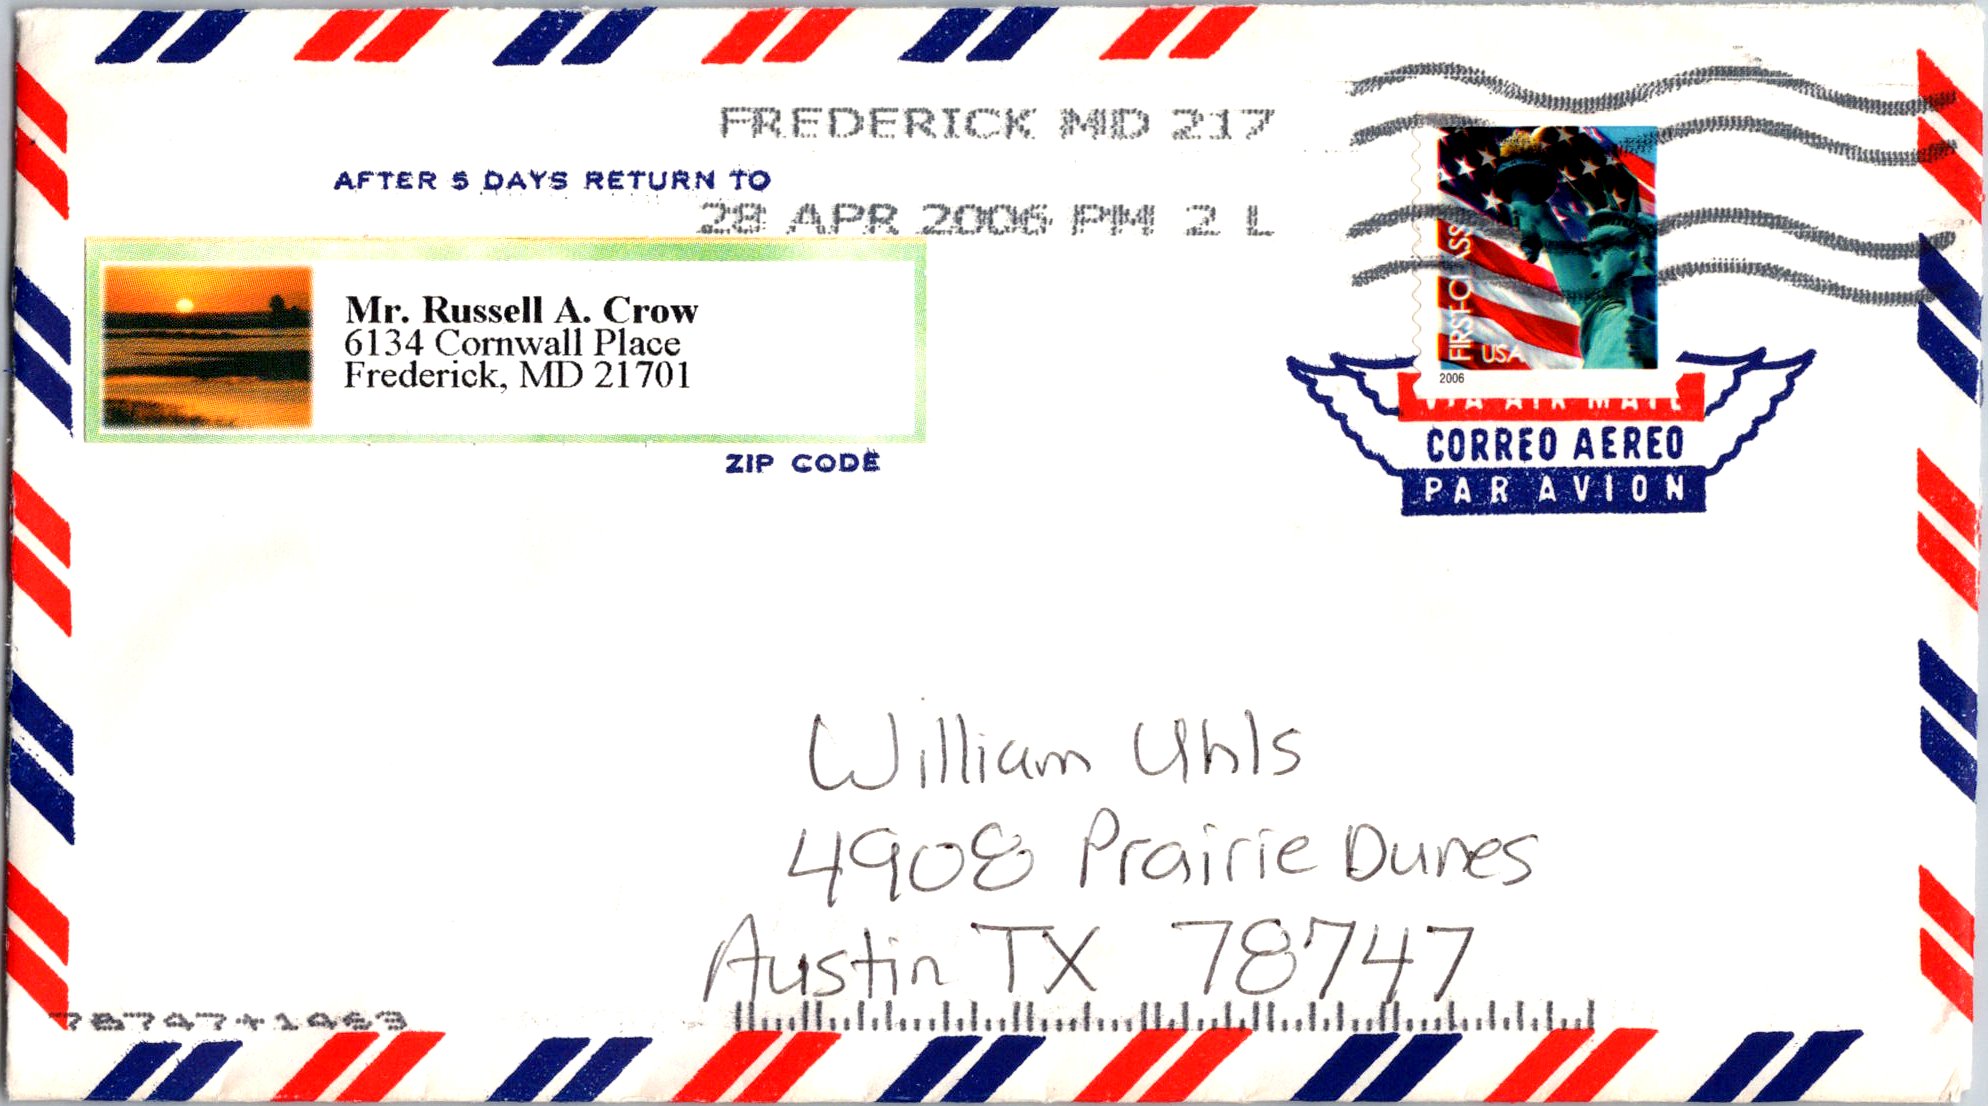 FREDERICK MD 217
AFTER 5 DAYS RETURN TO
28 APR 2006 PM 2 L
Mr. Russell A. Crow
6134 Cornwall Place
Frederick, MD 21701
ZIP CODE
FIRST-CLASS
USA
2006
VIA AIR MAIL
CORREO AEREO
PAR AVION
William Uhls
4908 Prairie Dunes
Austin TX 78747